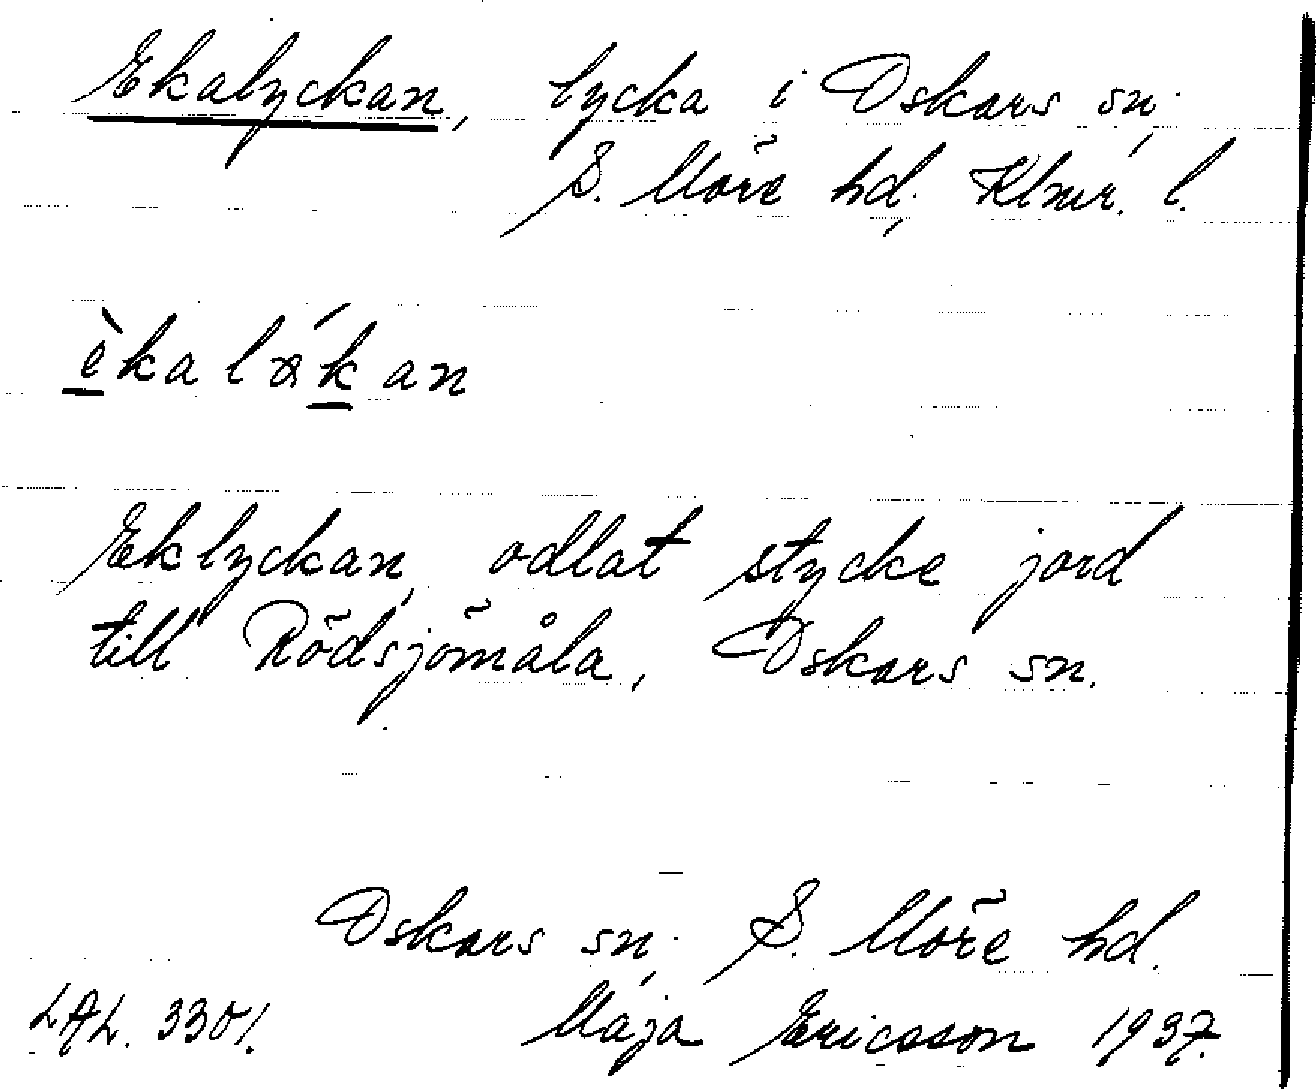 Ekalyckan, lycka i Oskars sn.,
S. Möre hd., Klmr. l.
èkaløkan
Eklyckan, odlat stycke jord
till Rödsjömåla, Oskars sn.
Oskars sn., S. Möre hd.
LAL. 3301. Maja Ericsson 1937.